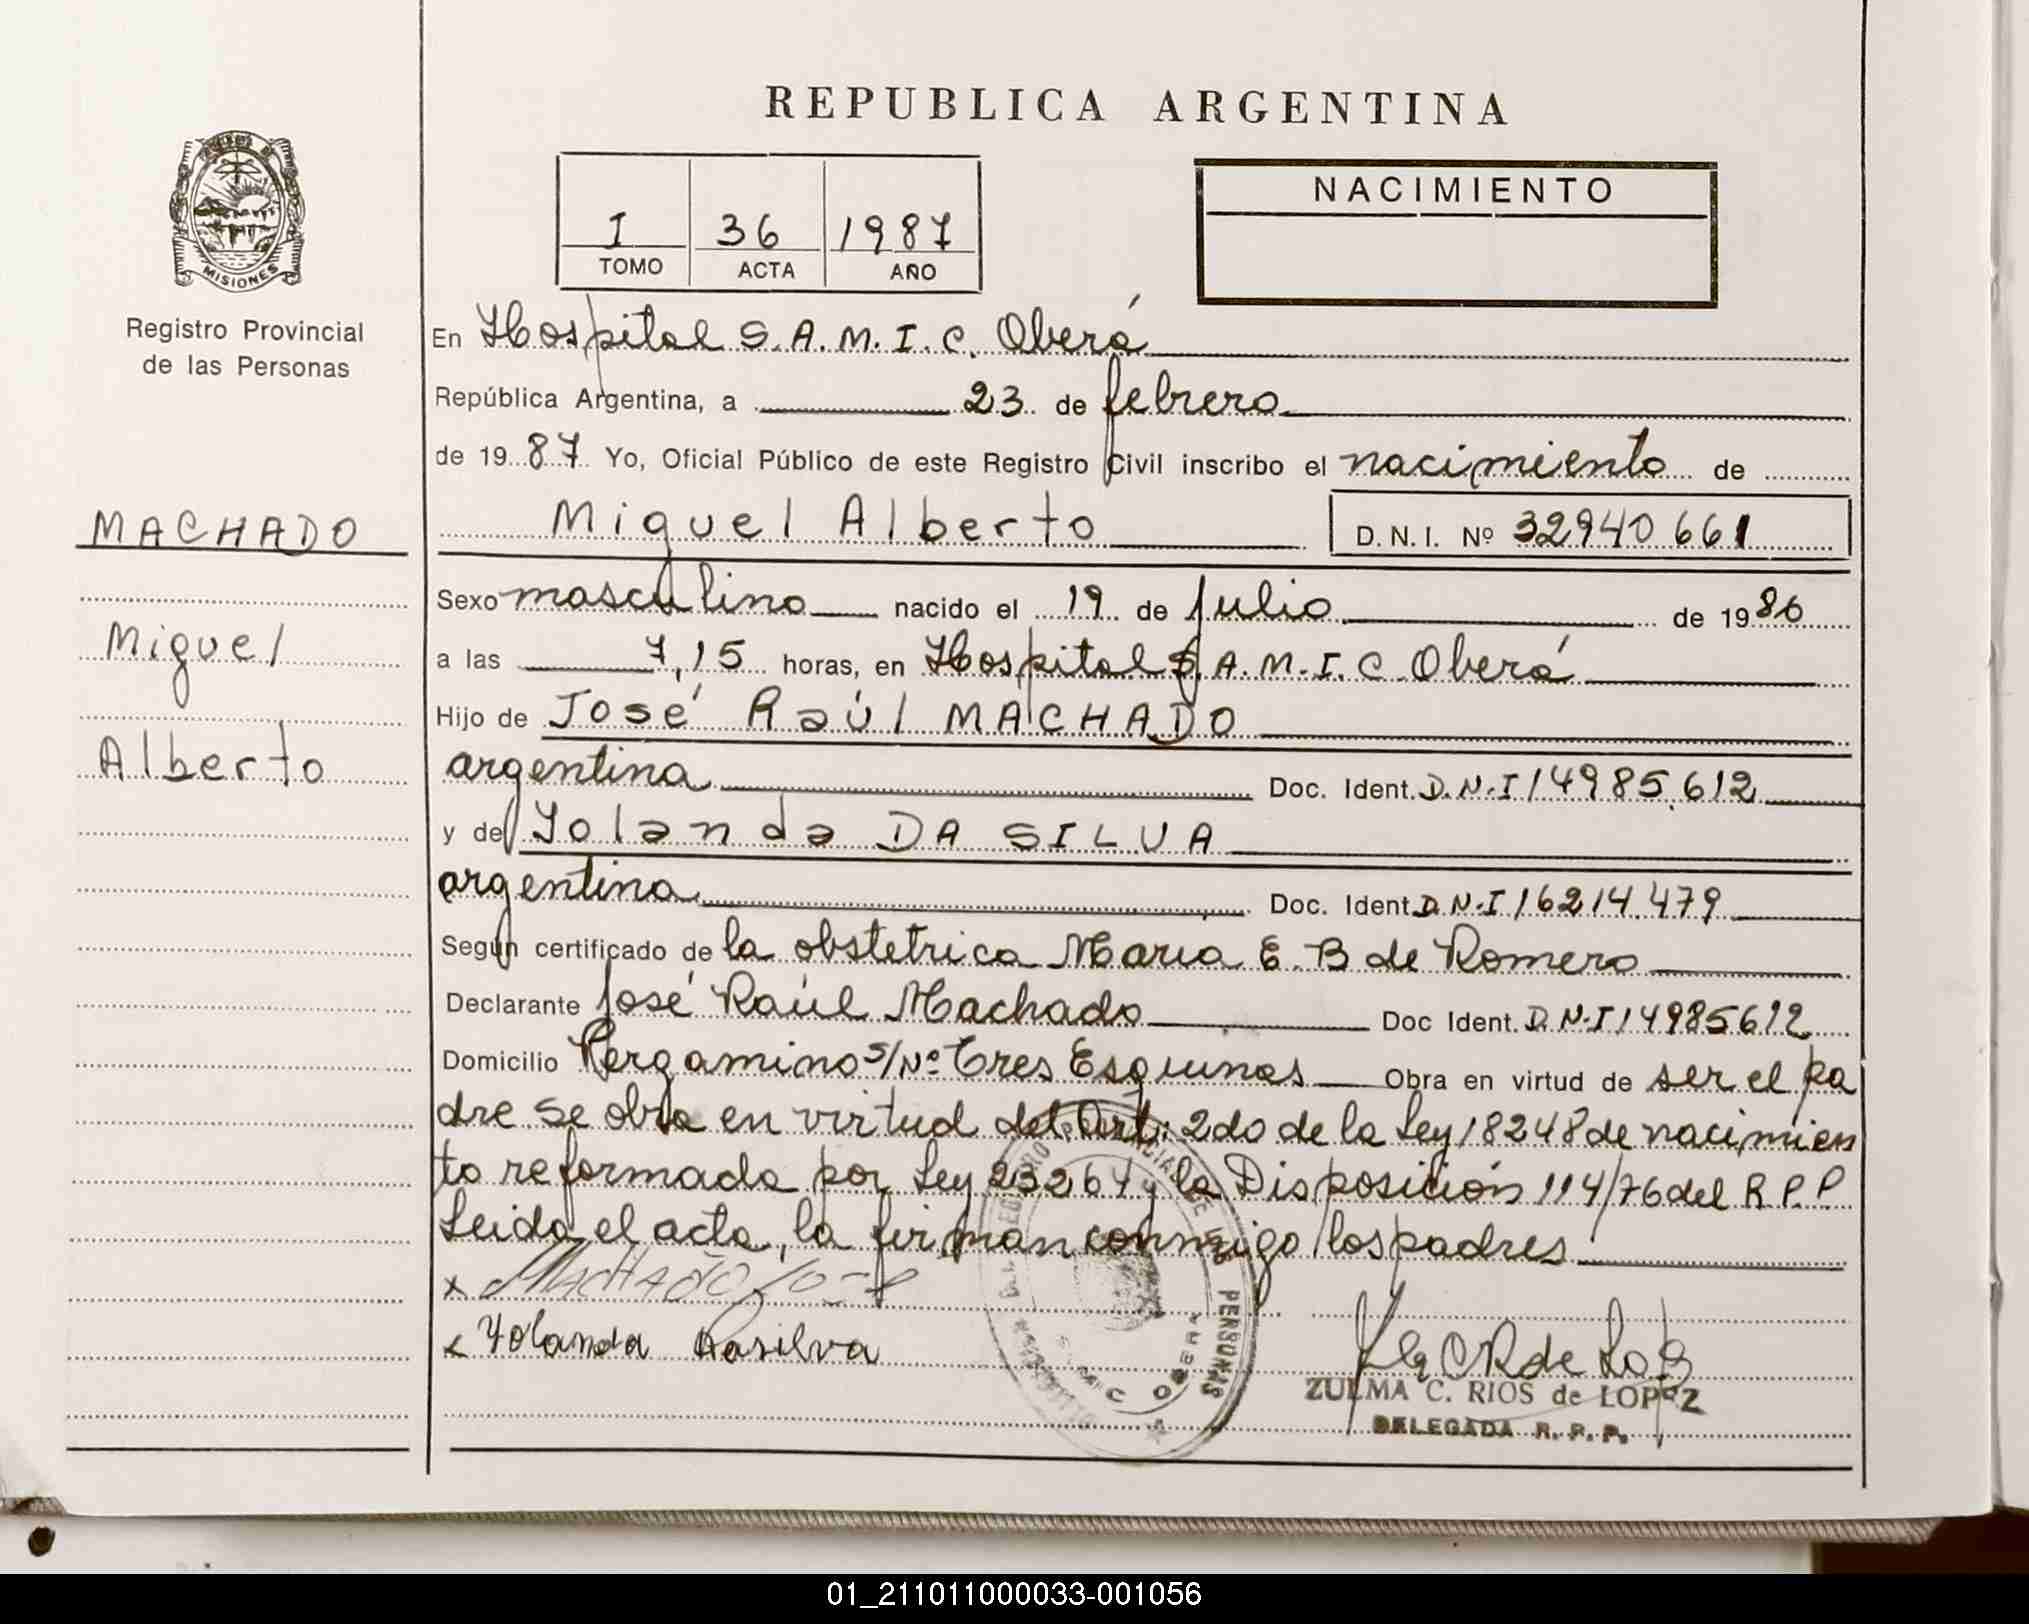 REPUBLICA ARGENTINA
MISIONES
Registro Provincial
de las Personas
I 36 1987
TOMO ACTA AÑO
NACIMIENTO
En Hospital S.A.M.I.C. Oberá
República Argentina, a 23 de febrero
de 1987 Yo, Oficial Público de este Registro Civil inscribo el nacimiento de
Miguel Alberto D.N.I. Nº 32940661
MACHADO
Miguel
Alberto
Sexo masculino nacido el 19 de Julio de 1986
a las 7,15 horas, en Hospital S.A.M.I.C. Oberá
Hijo de José Raúl MACHADO
argentina Doc. Ident. D.N.I 14985.612
y de Yolanda DA SILVA
argentina Doc. Ident D.N.I 16214.479
Según certificado de la obstetrica Maria E. B de Romero
Declarante José Raúl Machado Doc Ident. D.N.I 14985612
Domicilio Pergamino S/Nº Tres Esquinas Obra en virtud de ser el pa
dre se obra en virtud del Art: 2do de la Ley 18248 de nacimien
to reformada por Ley 23264 y la Disposición 114/76 del R.P.P
Leida el acta, la firman conmigo los padres
x MACHADO JOSE
x Yolanda Dasilva
DE LAS PERSONAS
OBERA
ZULMA C. RIOS de LOPEZ
DELEGADA R. P. P.
01_211011000033-001056